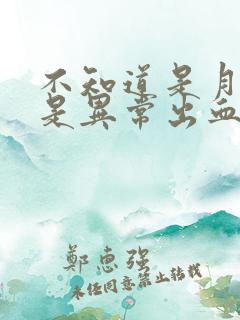 不知道是月
是異常出血
鄭惠強
未任同意禁止转载